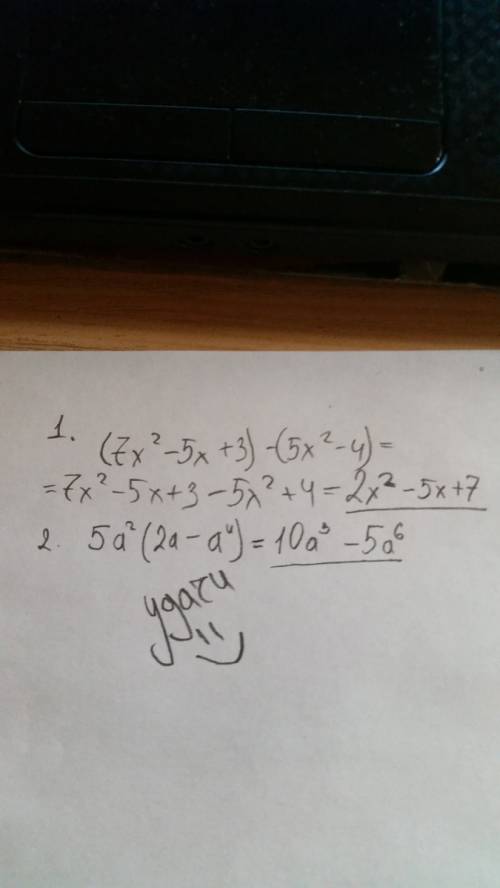 1.
(7x²-5x+3)-(5x²-4)=
=7x²-5x+3-5x²+4=2x²-5x+7
2. 5a²(2a-a⁴)=10a³-5a⁶
удачи